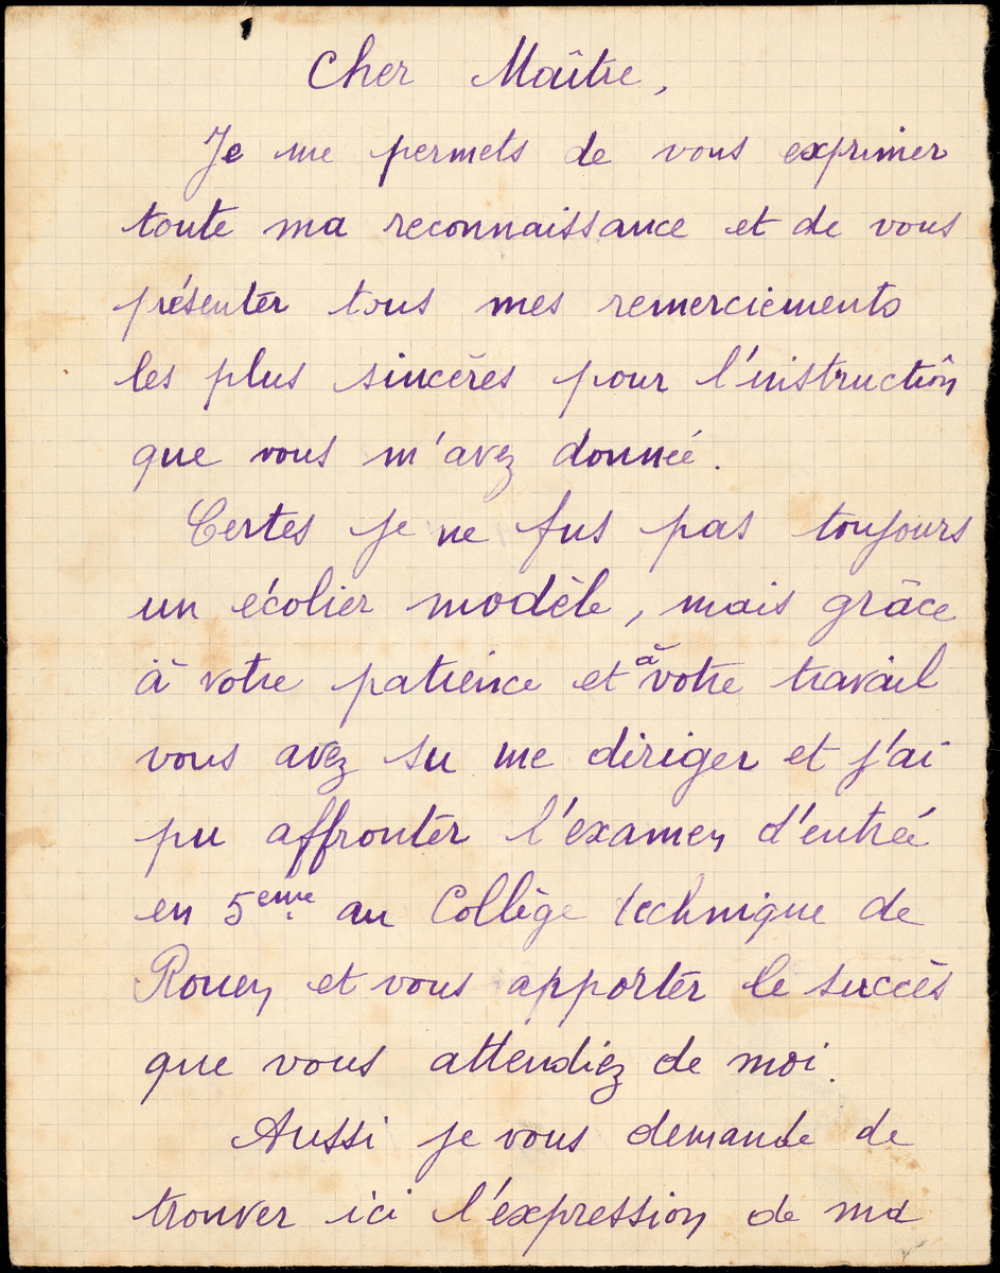 Cher Maître,
Je me permets de vous exprimer
toute ma reconnaissance et de vous
présenter tous mes remerciements
les plus sincères pour l'instruction
que vous m'avez donnée.
Certes je ne fus pas toujours
un écolier modèle, mais grâce
à votre patience et à votre travail
vous avez su me diriger et j'ai
pu affronter l'examen d'entrée
en 5eme au Collège technique de
Rouen et vous apporter le succès
que vous attendiez de moi.
Aussi je vous demande de
trouver ici l'expression de ma